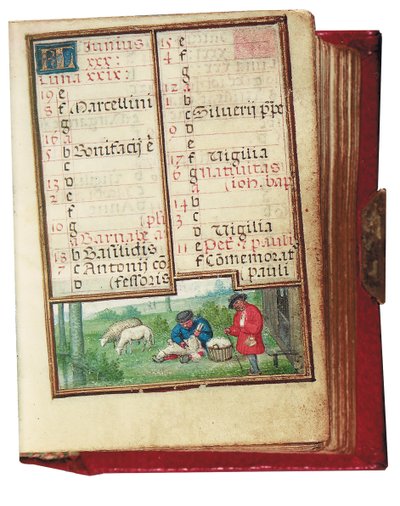 KL Iunius
xxx:
Luna xxix:
19 e
8 f Marcellini
g
16 a
5 b Bonifacij ē
c
13 d
2 e
f
10 g (ph
a Barnabe a
18 b Basilidis
7 c Antonij cō
d (fessoris
15 e
4 f
g
12 a
1 b
c Siluerij pp̄e
9 d
e
17 f Vigilia
6 g Natiuitas
a (ioh. bap
14 b
3 c
d Vigilia
11 e Pet. pauli
f Cōmemorat
pauli